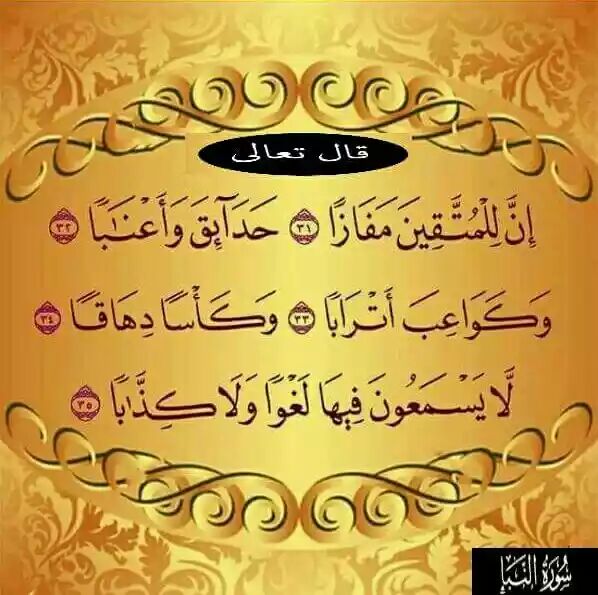 قال تعالى
إِنَّ لِلْمُتَّقِينَ مَفَازًا ٣١ حَدَآئِقَ وَأَعْنَٰبًا ٣٢
وَكَوَاعِبَ أَتْرَابًا ٣٣ وَكَأْسًا دِهَاقًا ٣٤
لَّا يَسْمَعُونَ فِيهَا لَغْوًا وَلَا كِذَّٰبًا ٣٥
سُورَةُ النَّبَإِ